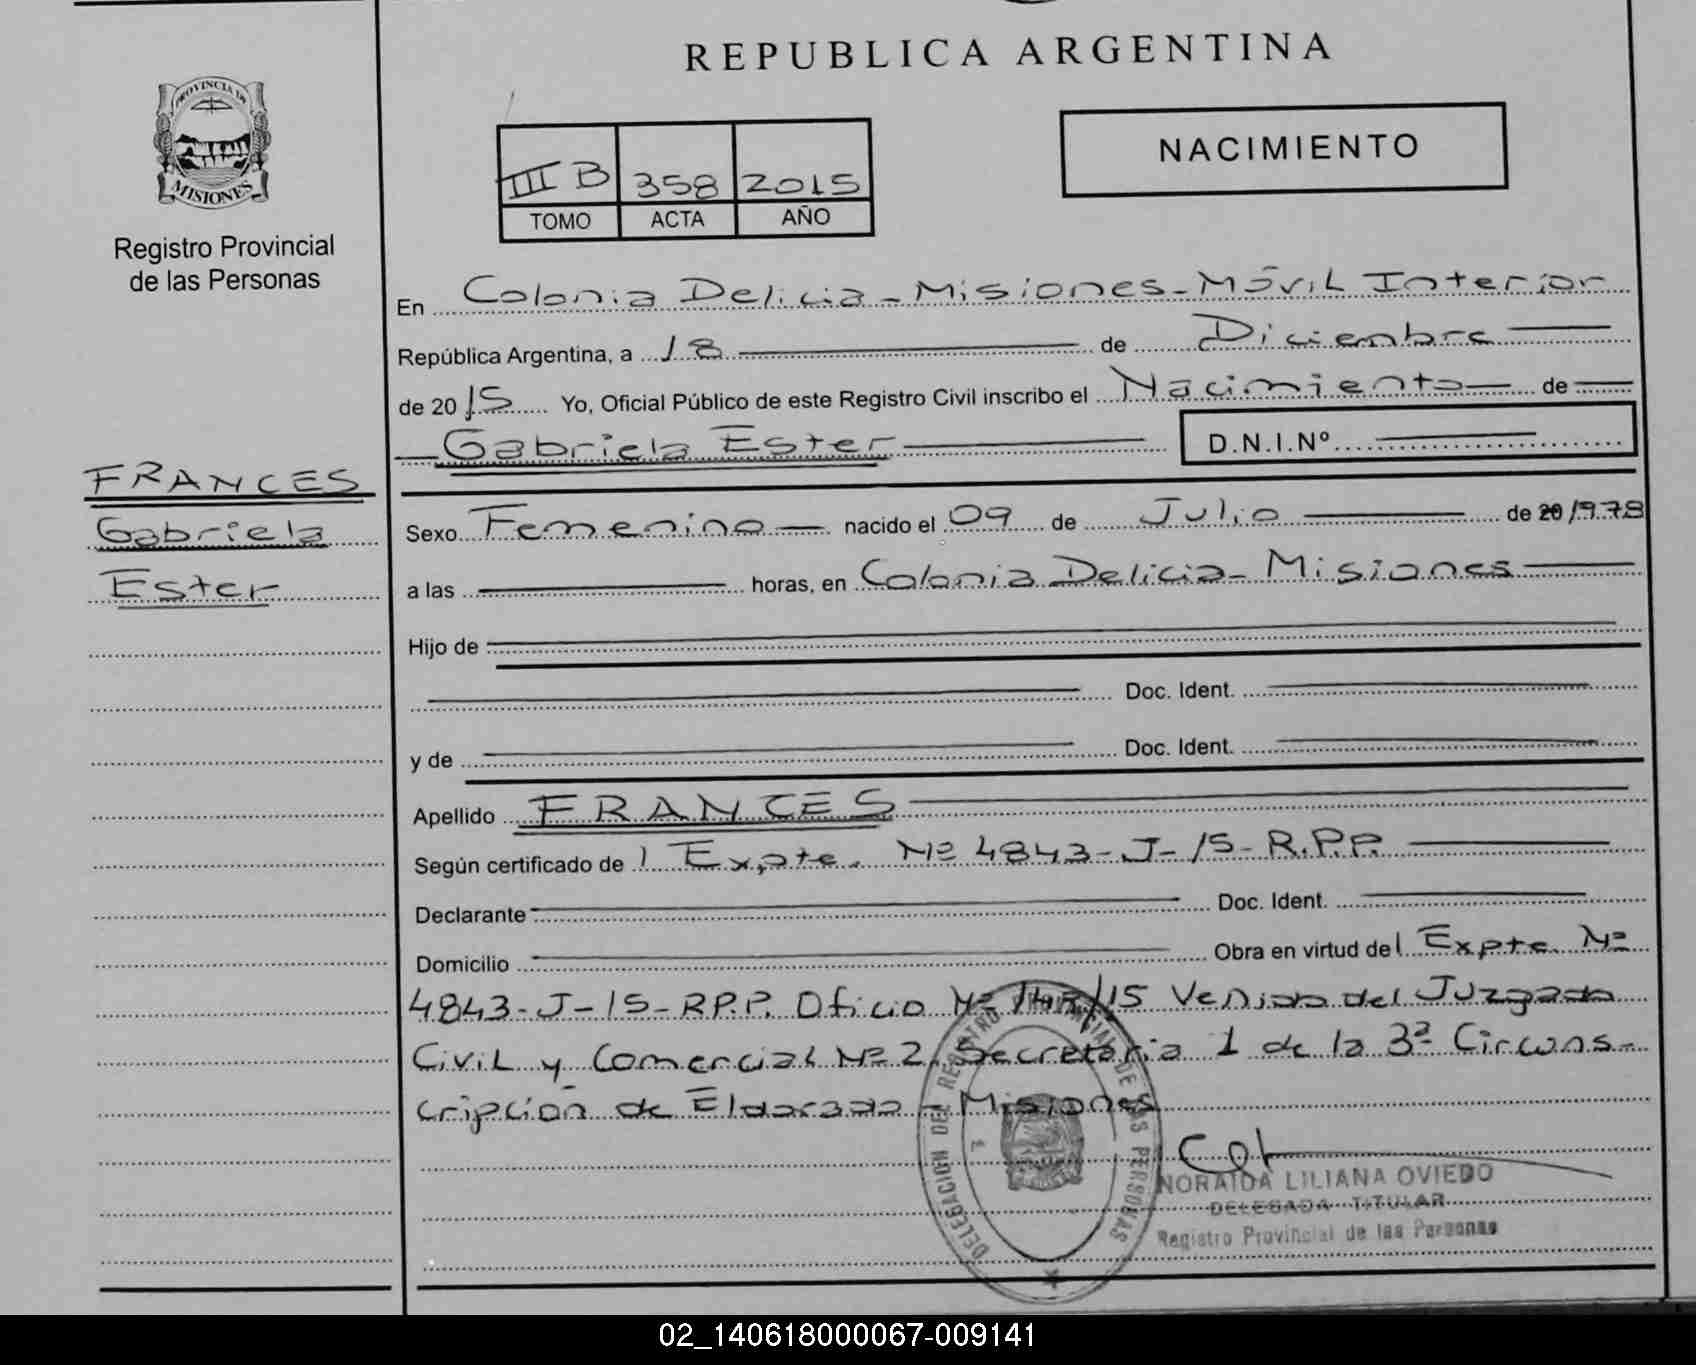 REPUBLICA ARGENTINA
PROVINCIA DE
MISIONES
Registro Provincial
de las Personas
NACIMIENTO
III B 358 2015
TOMO ACTA AÑO
En Colonia Delicia - Misiones - Móvil Interior
República Argentina, a 18 de Diciembre
de 2015 Yo, Oficial Público de este Registro Civil inscribo el Nacimiento de
Gabriela Ester D.N.I.Nº
FRANCES
Gabriela
Ester
Sexo Femenino nacido el 09 de Julio de 20 1978
a las horas, en Colonia Delicia - Misiones
Hijo de
Doc. Ident.
y de Doc. Ident.
Apellido FRANCES
Según certificado de l Expte. Nº 4843-J-15-R.P.P.
Declarante Doc. Ident.
Domicilio Obra en virtud del Expte Nº
4843-J-15-R.P.P. Oficio Nº /15 Venido del Juzgado
Civil y Comercial Nº 2, Secretaria 1 de la 3ª Circuns-
cripción de Eldorado - Misiones
DELEGACION DEL REGISTRO PROVINCIAL DE LAS PERSONAS
NORAIDA LILIANA OVIEDO
DELEGADA TITULAR
Registro Provincial de las Personas
02_140618000067-009141